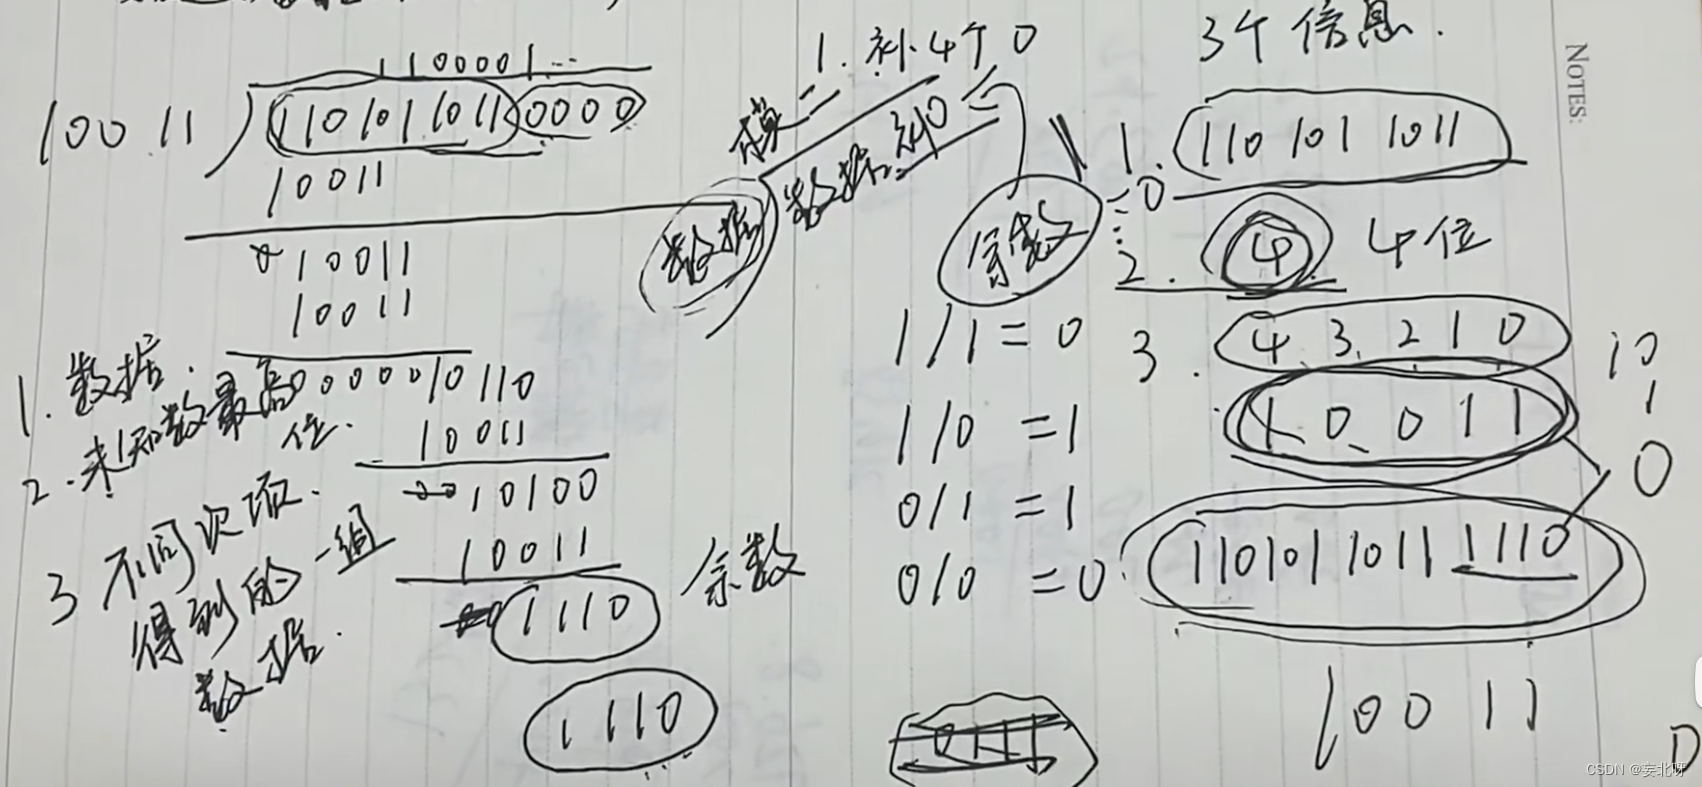 1100001...
10011 ) 1101011011 0000
10011
0 10011
10011
00000010110
10011
0010100
10011
1110 余数
1110
1. 数据.
2. 未知数最高位.
3 不同次项.
得到的一组
数据.
1. 补4个0
模二
数据
数据补0
余数
=0
1/1=0
1/0=1
0/1=1
0/0=0
3个信息.
1. 1101011011
2. 4 4位
3. 4 3 2 1 0
1 0 0 1 1
10
1
0
1101011011 1110
10011
D
NOTES:
CSDN @妄北呀